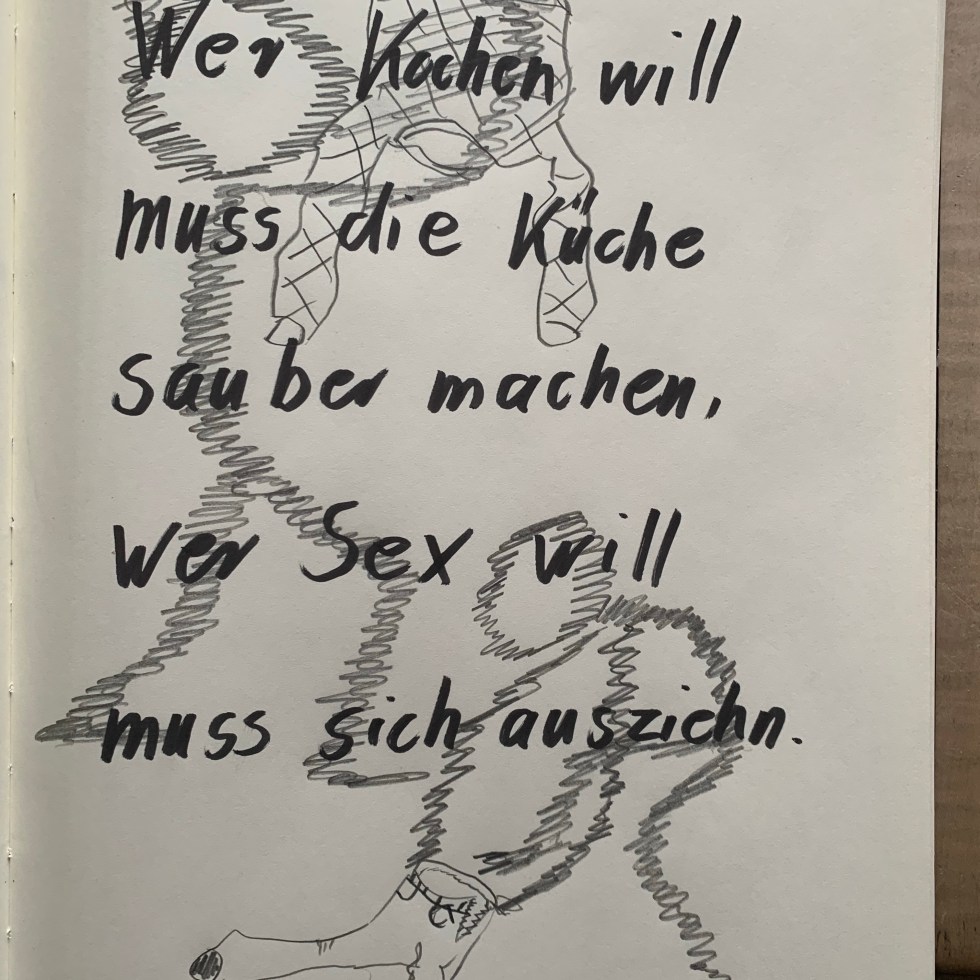 Wer Kochen will
muss die Küche
sauber machen,
wer Sex will
muss sich ausziehn.